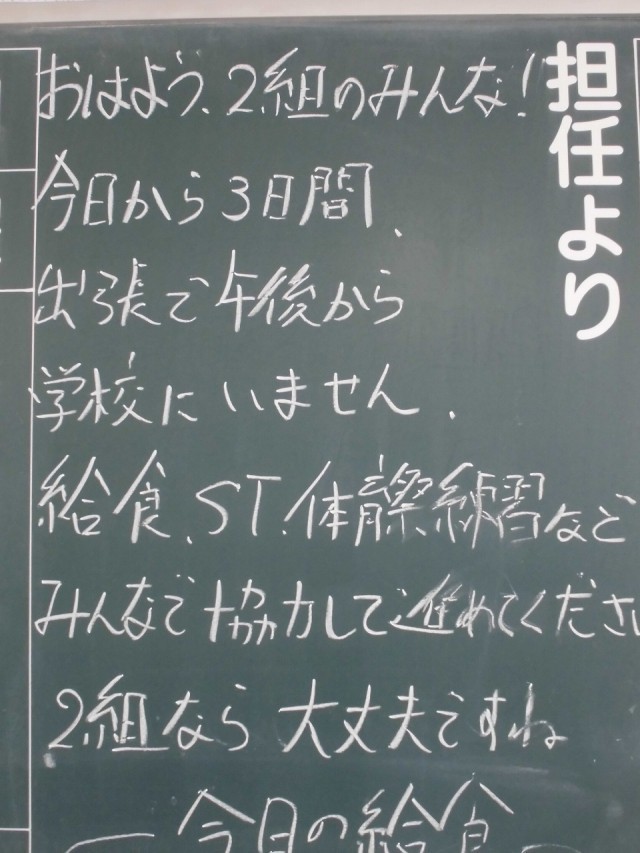 担任より
おはよう、2組のみんな!
今日から3日間、
出張で午後から
学校にいません.
給食、ST、体育祭練習など
みんなで協力して進めてくださ
2組なら大丈夫ですね
今日の給食